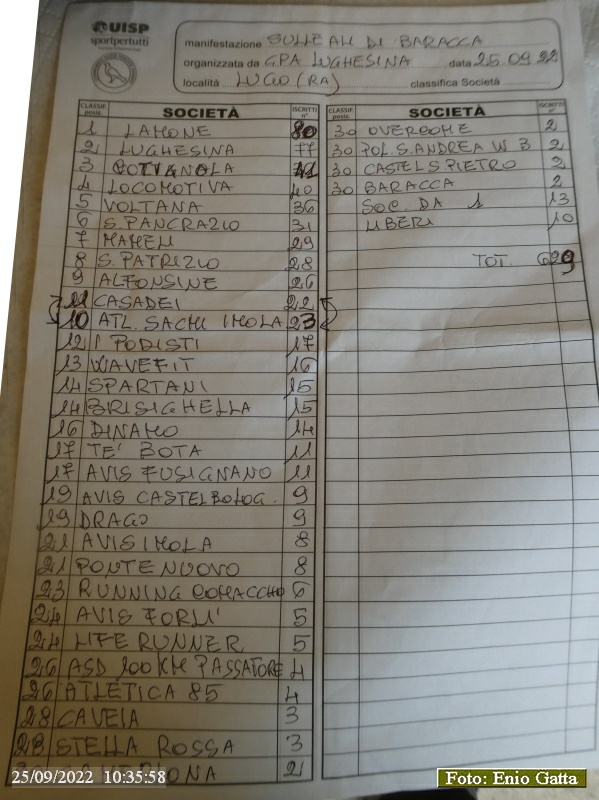 UISP
sportpertutti
manifestazione SULLE ALI DI BARACCA
organizzata da G.P.A LUGHESINA data 25.09.22
località LUGO (RA) classifica Società
CLASSIF. posiz. SOCIETÀ ISCRITTI n°
1 LAMONE 80
2 LUGHESINA 77
3 COTIGNOLA
4 LOCOMOTIVA 40
5 VOLTANA 36
6 S. PANCRAZIO 31
7 MAMELI 29
8 S. PATRIZIO 28
9 ALFONSINE 26
11 CASADEI 22
10 ATL. SACMI IMOLA 23
12 I PODISTI 17
13 WAVEFIT 16
14 SPARTANI 15
14 BRISIGHELLA 15
16 DINAMO 14
17 TE' BOTA 11
17 AVIS FUSIGNANO 11
19 AVIS CASTELBOLOG. 9
19 DRAGO 9
21 AVIS IMOLA 8
21 PONTE NUOVO 8
23 RUNNING COMACCHIO 6
24 AVIS FORLI' 5
24 LIFE RUNNER 5
26 ASD 100 KM PASSATORE 4
26 ATLETICA 85 4
28 CAVEJA 3
28 STELLA ROSSA 3
2
CLASSIF. posiz. SOCIETÀ ISCRITTI n°
30 OVERCOME 2
30 POL. S. ANDREA W B 2
30 CASTEL S PIETRO 2
30 BARACCA 2
SOC. DA 1 13
LIBERI 10
TOT. 629
25/09/2022 10:35:58
Foto: Enio Gatta